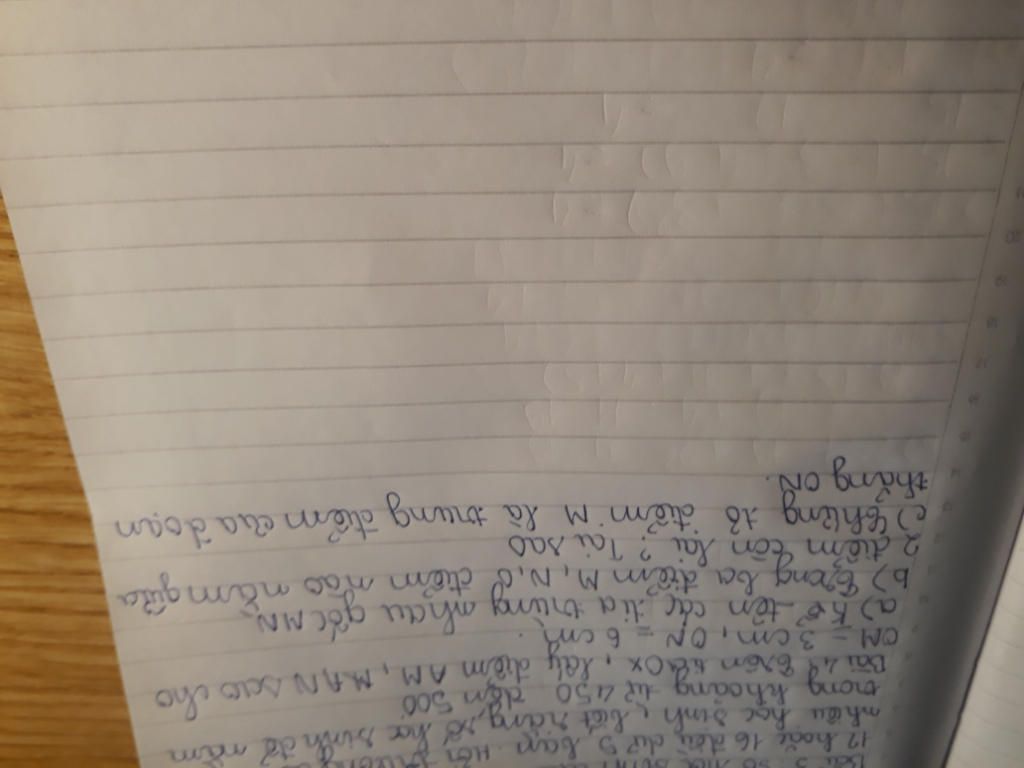 Bài 3 số học sinh
12 hoặc 16 đều dư 5 bạn Hỏi trường
nhiêu học sinh, biết rằng số học sinh đó nằm
trong khoảng từ 450 đến 500
Bài 4: Trên tia Ox, lấy điểm AM, MAN sao cho
OM = 3cm, ON = 6cm.
a) Kể tên các tia trùng nhau gốc MN
b) Trong ba điểm M, N, O điểm nào nằm giữa
2 điểm còn lại? Tại sao
c) Chứng tỏ điểm M là trung điểm của đoạn
thẳng ON.